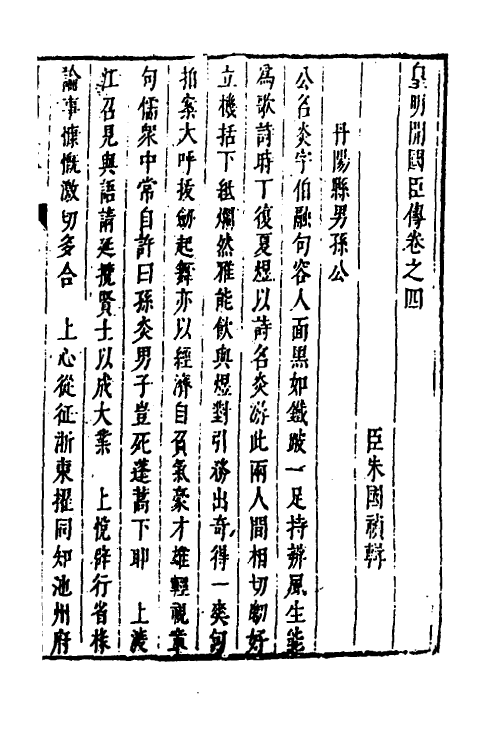 皇明開國臣傳卷之四
臣朱國禎輯
丹陽縣男孫公
公名炎字伯融句容人面黑如鐵跛一足持辨風生能
爲歌詩時丁復夏煜以詩名炎游此兩人間相切劘好
立機括下紙爛然雅能飲與煜對引務出奇得一奭句
拍案大呼拔劒起舞亦以經濟自負氣豪才雄輕視章
句儒衆中常自許曰孫炎男子豈死蓬蒿下耶　上渡
江召見與語請延攬賢士以成大業　上悅辟行省掾
論事慷慨激切多合　上心從征浙東擢同知池州府